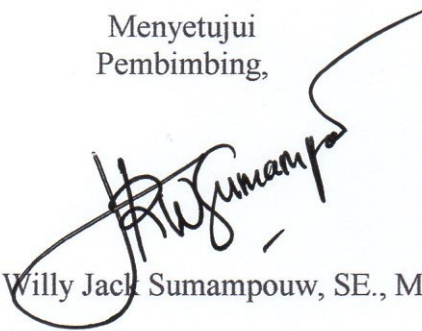 Menyetujui
Pembimbing,
Willy Jack Sumampouw, SE., M